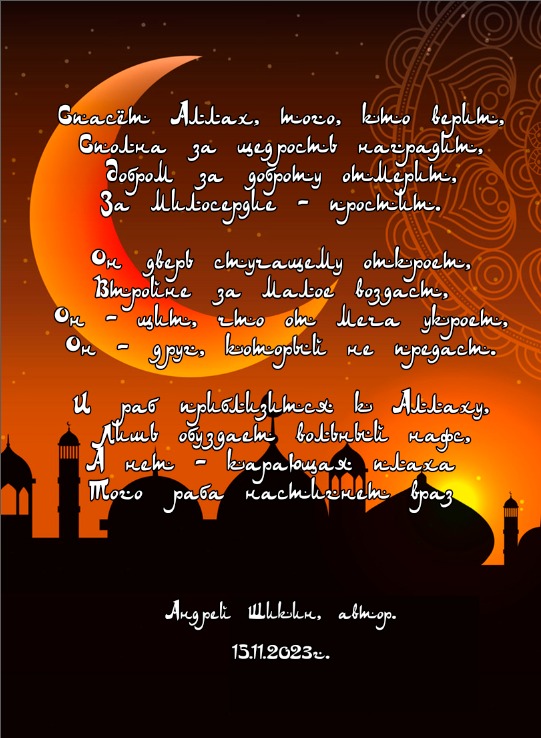 Спасёт Аллах, того, кто верит,
Сполна за щедрость наградит,
Добром за доброту отмерит,
За Милосердие - простит.
Он дверь стучащему откроет,
Втройне за малое воздаст,
Он - щит, что от Меча укроет,
Он - друг, который не предаст.
И раб приблизится к Аллаху,
Лишь обуздает вольный нафс,
А нет - карающая плаха
Того раба настигнет враз
Андрей Шикин, автор.
15.11.2023г.